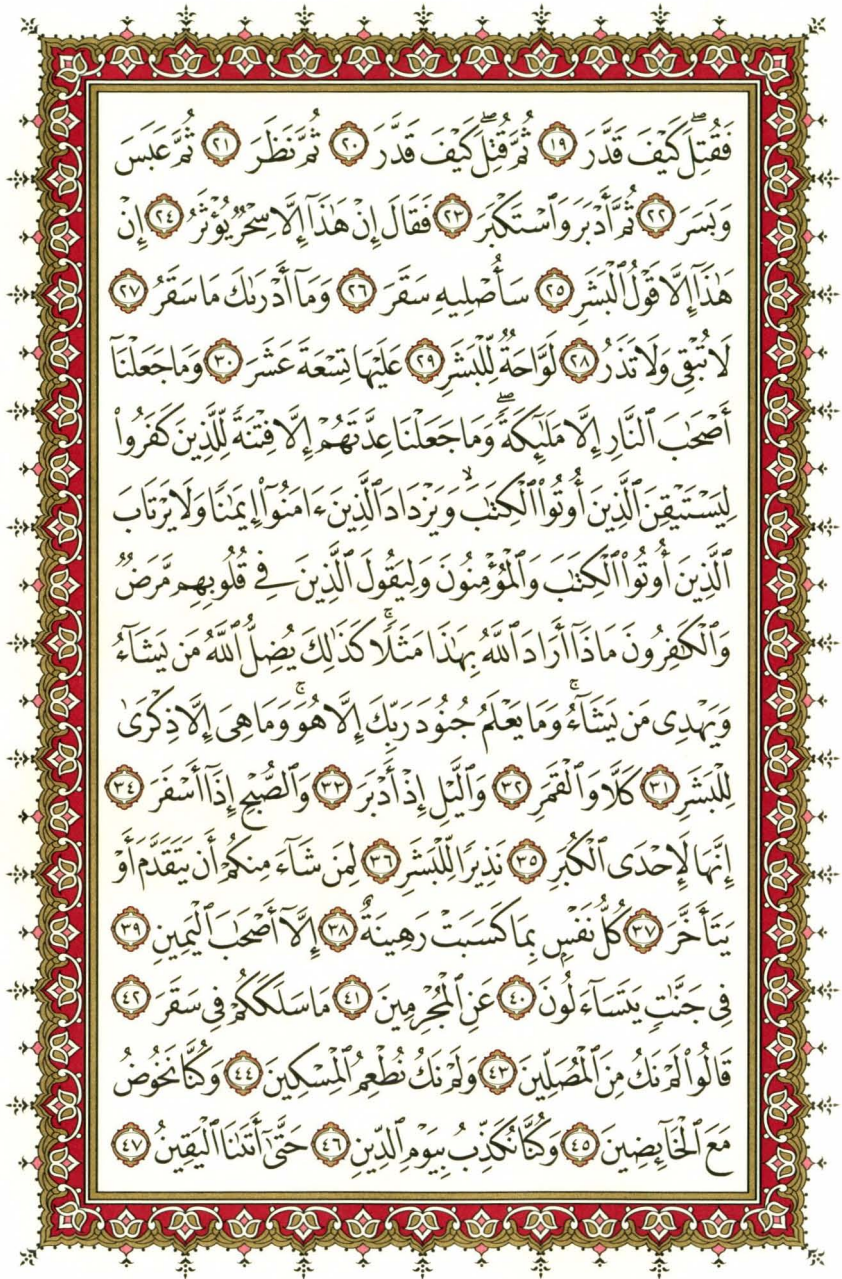 فَقُتِلَ كَيْفَ قَدَّرَ ١٩ ثُمَّ قُتِلَ كَيْفَ قَدَّرَ ٢٠ ثُمَّ نَظَرَ ٢١ ثُمَّ عَبَسَ
وَبَسَرَ ٢٢ ثُمَّ أَدْبَرَ وَٱسْتَكْبَرَ ٢٣ فَقَالَ إِنْ هَٰذَآ إِلَّا سِحْرٌ يُؤْثَرُ ٢٤ إِنْ
هَٰذَآ إِلَّا قَوْلُ ٱلْبَشَرِ ٢٥ سَأُصْلِيهِ سَقَرَ ٢٦ وَمَآ أَدْرَىٰكَ مَا سَقَرُ ٢٧
لَا تُبْقِى وَلَا تَذَرُ ٢٨ لَوَّاحَةٌ لِّلْبَشَرِ ٢٩ عَلَيْهَا تِسْعَةَ عَشَرَ ٣٠ وَمَا جَعَلْنَآ
أَصْحَٰبَ ٱلنَّارِ إِلَّا مَلَٰٓئِكَةً ۖ وَمَا جَعَلْنَا عِدَّتَهُمْ إِلَّا فِتْنَةً لِّلَّذِينَ كَفَرُوا۟
لِيَسْتَيْقِنَ ٱلَّذِينَ أُوتُوا۟ ٱلْكِتَٰبَ ۙ وَيَزْدَادَ ٱلَّذِينَ ءَامَنُوٓا۟ إِيمَٰنًا وَلَا يَرْتَابَ
ٱلَّذِينَ أُوتُوا۟ ٱلْكِتَٰبَ وَٱلْمُؤْمِنُونَ وَلِيَقُولَ ٱلَّذِينَ فِى قُلُوبِهِم مَّرَضٌ
وَٱلْكَٰفِرُونَ مَاذَآ أَرَادَ ٱللَّهُ بِهَٰذَا مَثَلًا ۚ كَذَٰلِكَ يُضِلُّ ٱللَّهُ مَن يَشَآءُ
وَيَهْدِى مَن يَشَآءُ ۚ وَمَا يَعْلَمُ جُنُودَ رَبِّكَ إِلَّا هُوَ ۚ وَمَا هِىَ إِلَّا ذِكْرَىٰ
لِلْبَشَرِ ٣١ كَلَّا وَٱلْقَمَرِ ٣٢ وَٱلَّيْلِ إِذْ أَدْبَرَ ٣٣ وَٱلصُّبْحِ إِذَآ أَسْفَرَ ٣٤
إِنَّهَا لَإِحْدَى ٱلْكُبَرِ ٣٥ نَذِيرًا لِّلْبَشَرِ ٣٦ لِمَن شَآءَ مِنكُمْ أَن يَتَقَدَّمَ أَوْ
يَتَأَخَّرَ ٣٧ كُلُّ نَفْسٍۭ بِمَا كَسَبَتْ رَهِينَةٌ ٣٨ إِلَّآ أَصْحَٰبَ ٱلْيَمِينِ ٣٩
فِى جَنَّٰتٍ يَتَسَآءَلُونَ ٤٠ عَنِ ٱلْمُجْرِمِينَ ٤١ مَا سَلَكَكُمْ فِى سَقَرَ ٤٢
قَالُوا۟ لَمْ نَكُ مِنَ ٱلْمُصَلِّينَ ٤٣ وَلَمْ نَكُ نُطْعِمُ ٱلْمِسْكِينَ ٤٤ وَكُنَّا نَخُوضُ
مَعَ ٱلْخَآئِضِينَ ٤٥ وَكُنَّا نُكَذِّبُ بِيَوْمِ ٱلدِّينِ ٤٦ حَتَّىٰٓ أَتَىٰنَا ٱلْيَقِينُ ٤٧